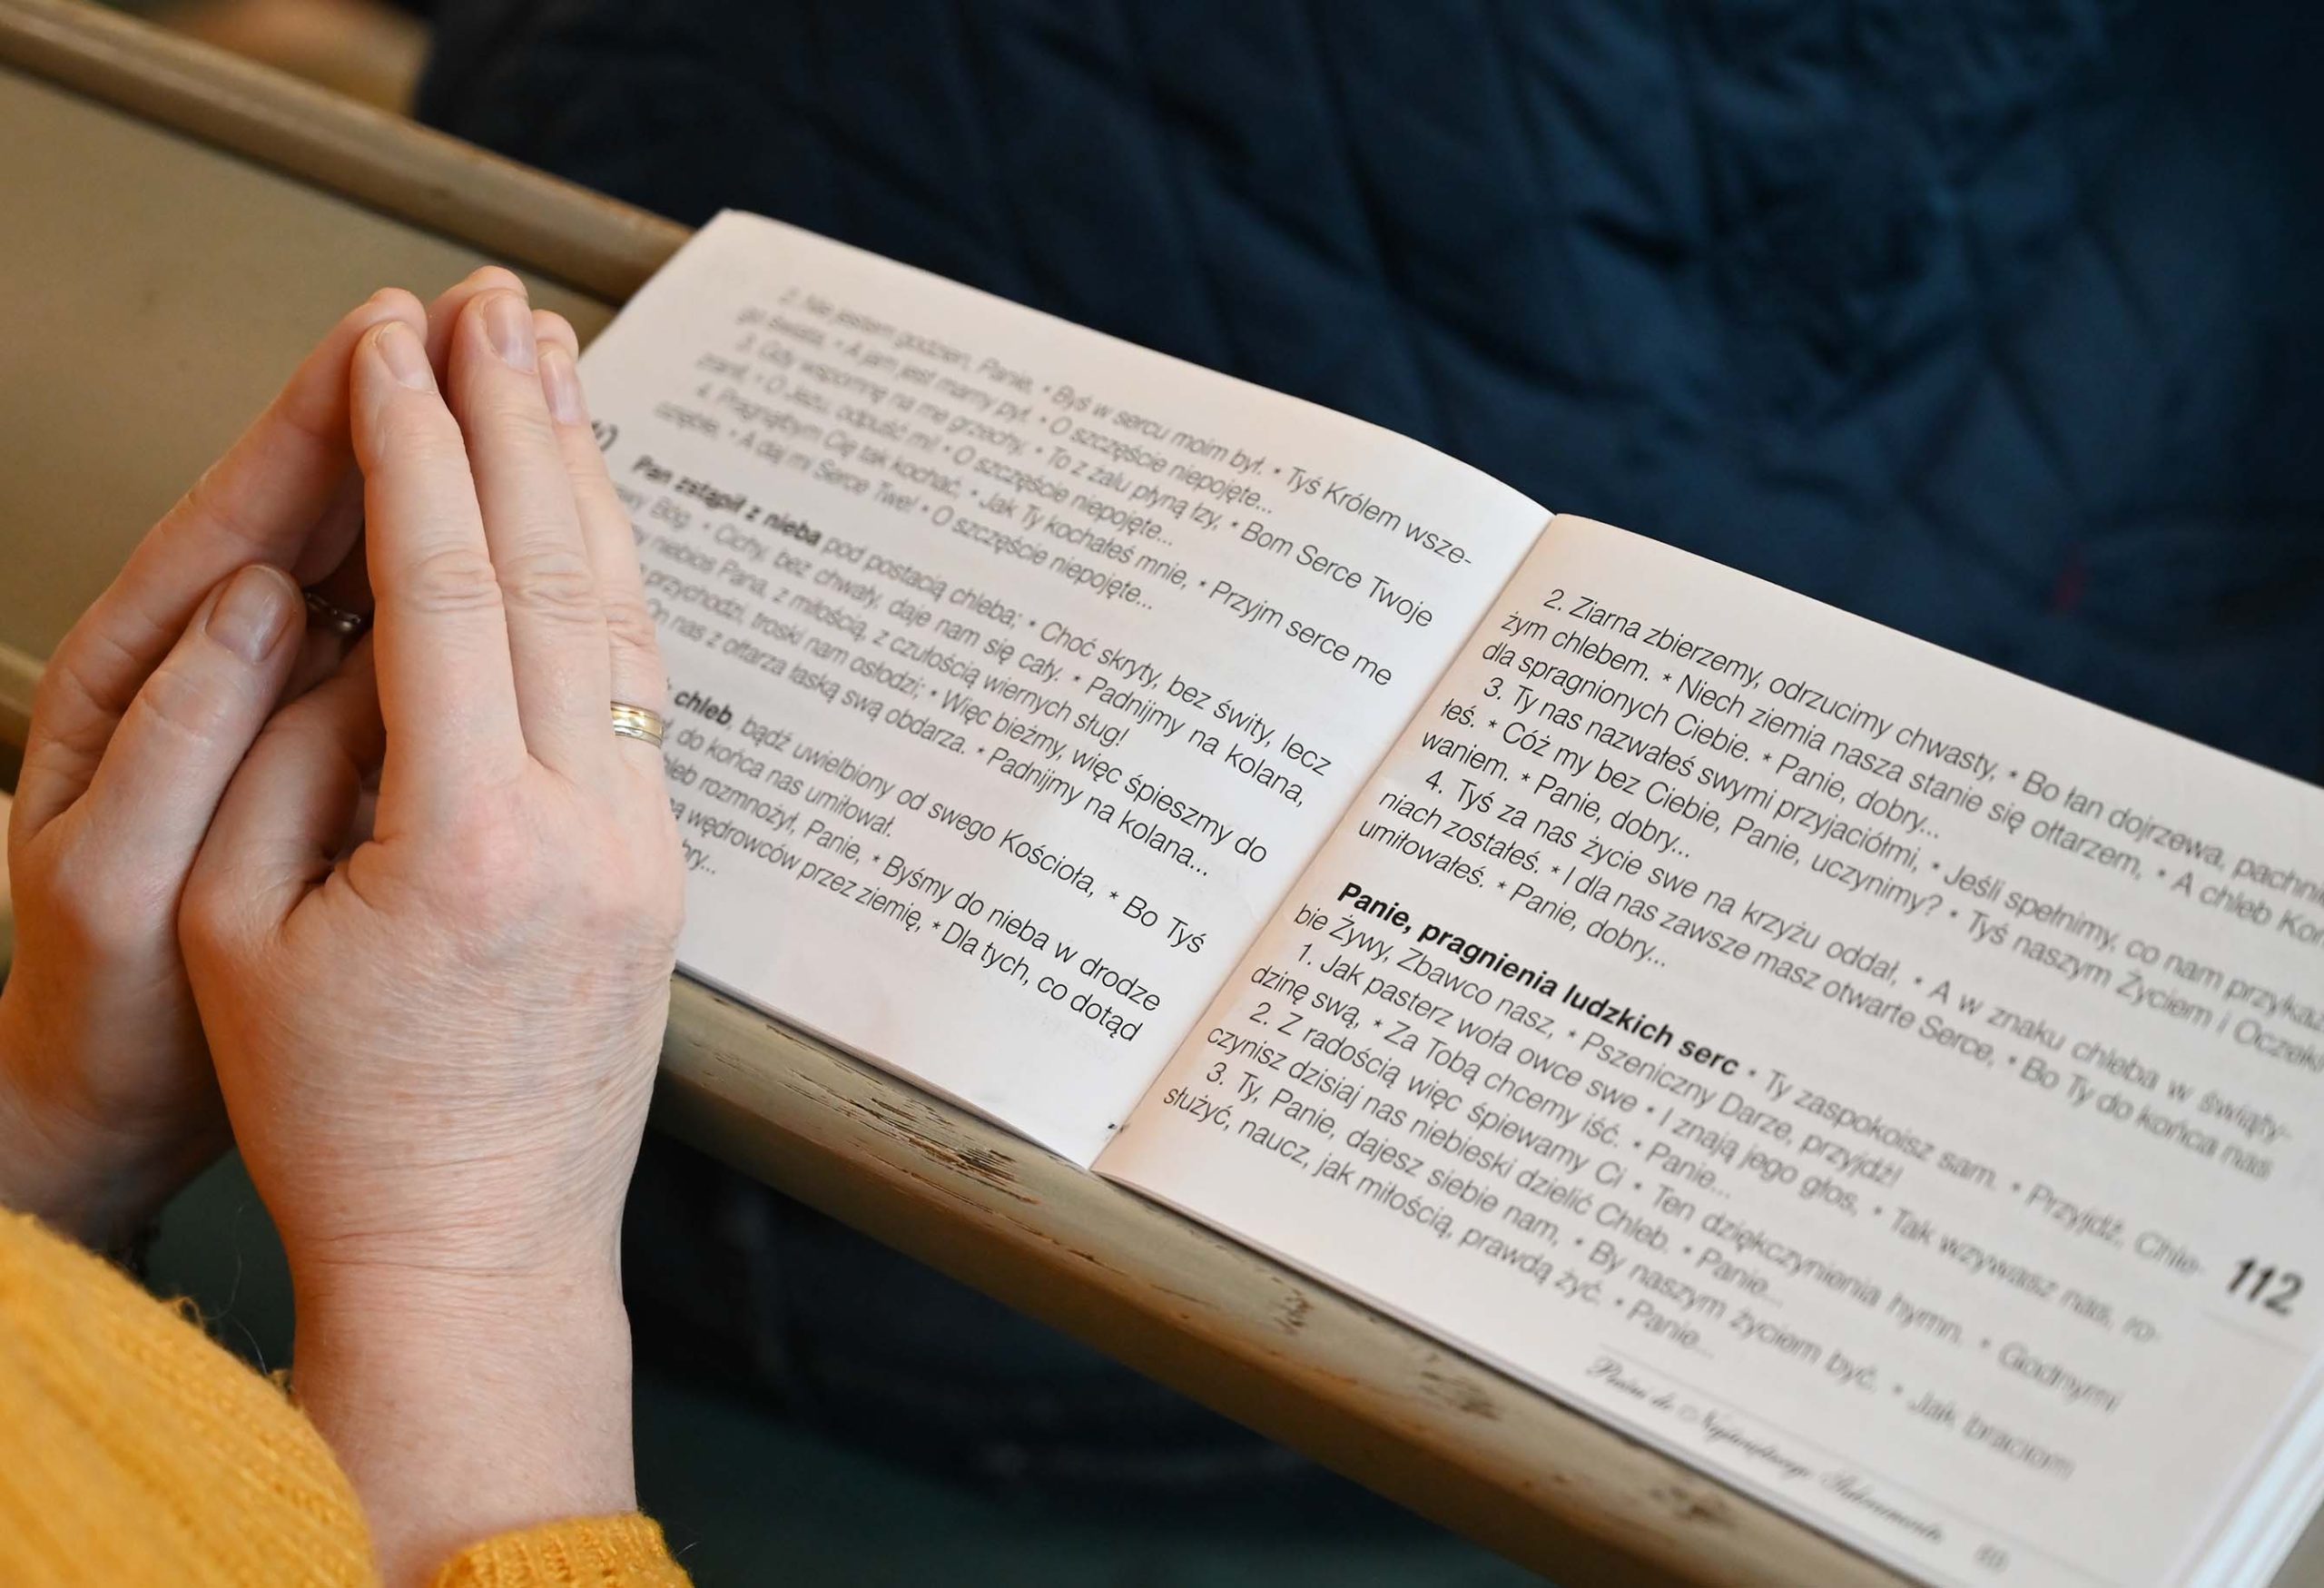 2. Nie jestem godzien, Panie, * Byś w sercu moim był. * Tyś Królem wsze-
go świata, * A jam jest marny pył. * O szczęście niepojęte...
3. Gdy wspomnę na me grzechy, * To z żalu płyną łzy, * Bom Serce Twoje
zranił, * O Jezu, odpuść mi! * O szczęście niepojęte...
4. Pragnąłbym Cię tak kochać, * Jak Ty kochałeś mnie, * Przyjm serce me
oziębłe, * A daj mi Serce Twe! * O szczęście niepojęte...
Pan zstąpił z nieba pod postacią chleba; * Choć skryty, bez świty, lecz
wy Bóg. * Cichy, bez chwały, daje nam się cały. * Padnijmy na kolana,
niebios Pana, z miłością, z czułością wiernych sług!
przychodzi, troski nam osłodzi; * Więc bieżmy, więc śpieszmy do
On nas z ołtarza łaską swą obdarza. * Padnijmy na kolana...
chleb, bądź uwielbiony od swego Kościoła, * Bo Tyś
do końca nas umiłował.
leb rozmnożył, Panie, * Byśmy do nieba w drodze
wędrowców przez ziemię, * Dla tych, co dotąd
bry...
2. Ziarna zbierzemy, odrzucimy chwasty, * Bo łan dojrzewa, pachni
żym chlebem. * Niech ziemia nasza stanie się ołtarzem, * A chleb Kom
dla spragnionych Ciebie. * Panie, dobry...
3. Ty nas nazwałeś swymi przyjaciółmi, * Jeśli spełnimy, co nam przykaza
łeś. * Cóż my bez Ciebie, Panie, uczynimy? * Tyś naszym Życiem i Oczeki
waniem. * Panie, dobry...
4. Tyś za nas życie swe na krzyżu oddał, * A w znaku chleba w świąty-
niach zostałeś. * I dla nas zawsze masz otwarte Serce, * Bo Ty do końca nas
umiłowałeś. * Panie, dobry...
Panie, pragnienia ludzkich serc * Ty zaspokoisz sam. * Przyjdź, Chle- 112
bie Żywy, Zbawco nasz, * Pszeniczny Darze, przyjdź!
1. Jak pasterz woła owce swe * I znają jego głos, * Tak wzywasz nas, ro-
dzinę swą, * Za Tobą chcemy iść. * Panie...
2. Z radością więc śpiewamy Ci * Ten dziękczynienia hymn. * Godnymi
czynisz dzisiaj nas niebieski dzielić Chleb. * Panie...
3. Ty, Panie, dajesz siebie nam, * By naszym życiem być. * Jak braciom
służyć, naucz, jak miłością, prawdą żyć. * Panie...
Pieśni do Najświętszego Sakramentu